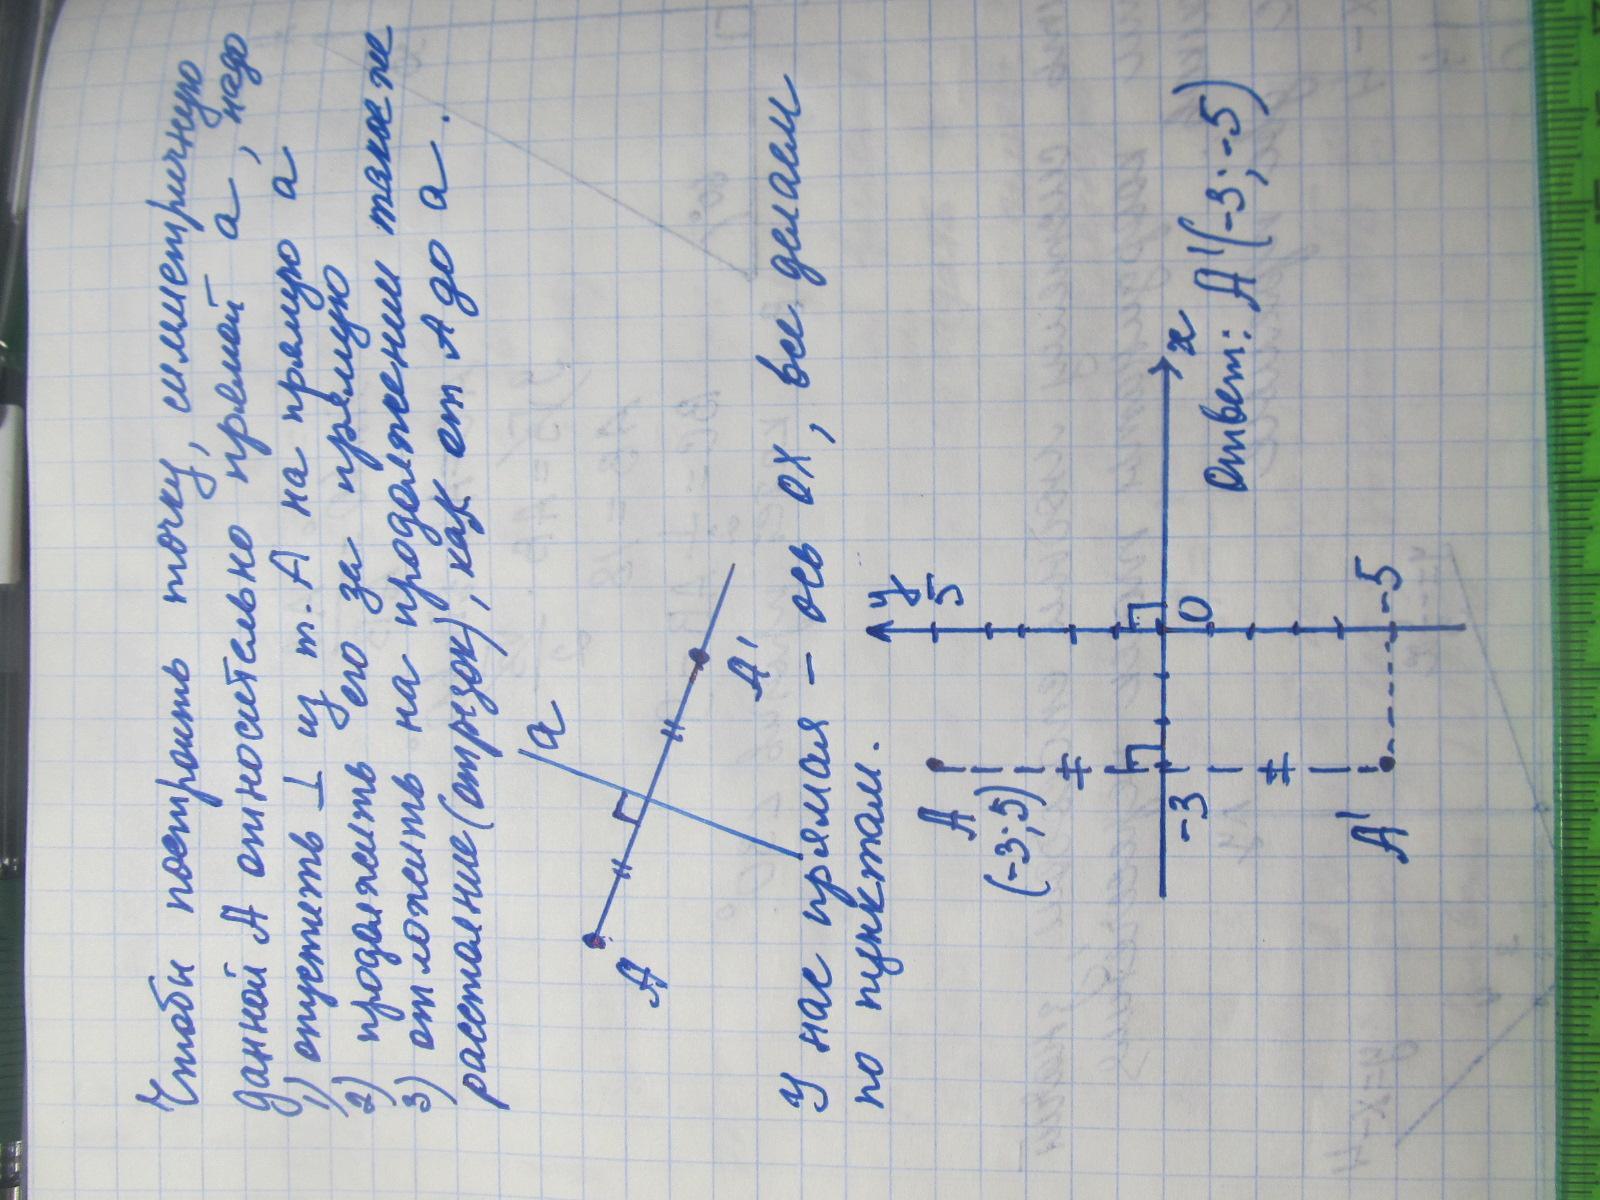 Чтобы построить точку, симметричную
данной А относительно прямой а, надо
1) опустить ⊥ из т. А на прямую а
2) продолжить его за прямую
3) отложить на продолжении такое же
расстояние (отрезок), как от А до а.
а
А
А'
У нас прямая – ось ОХ, все делаем
по пунктам.
у
А
5
(-3; 5)
-3
0
х
А'
-5
Ответ: А'(-3; -5)